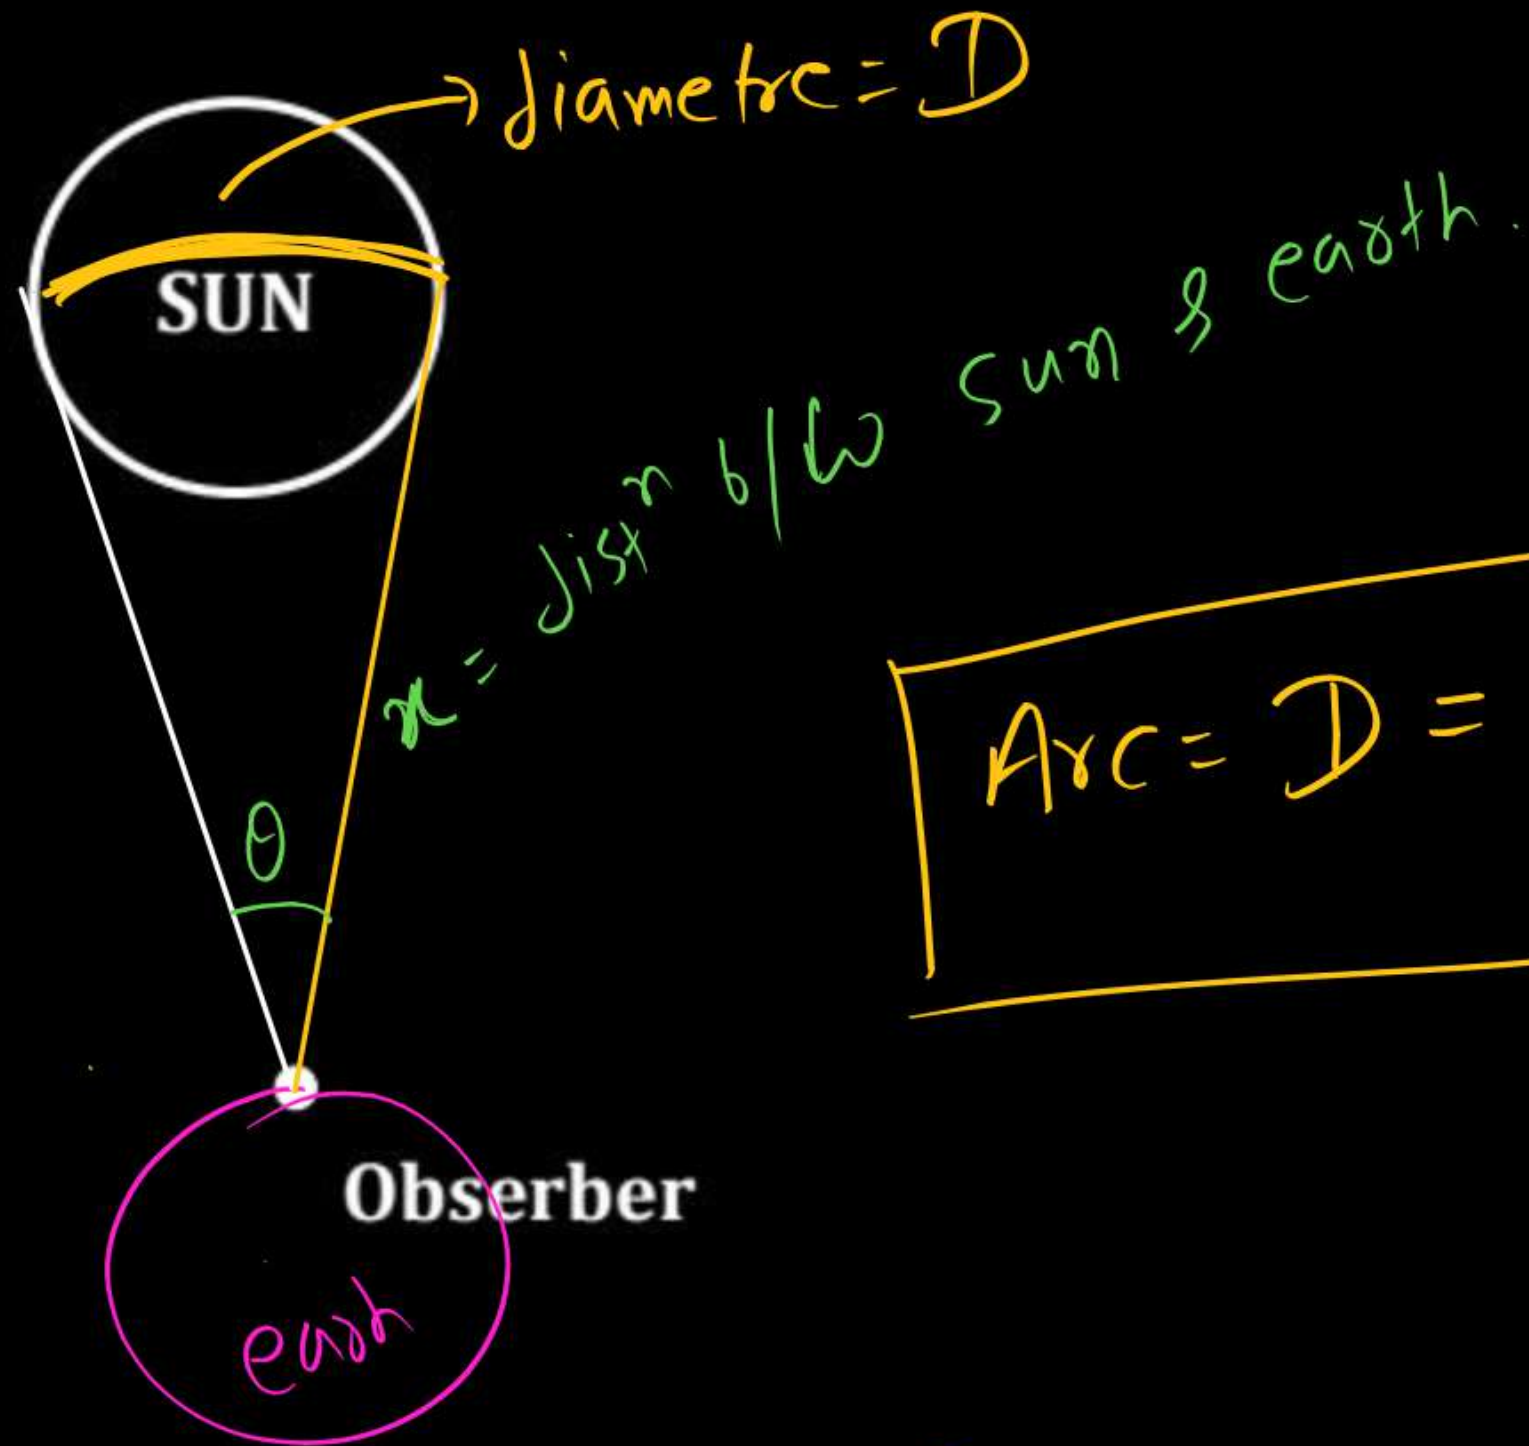 diametre = D
SUN
x = distⁿ b/w sun & earth.
Arc = D =
θ
Obserber
earh